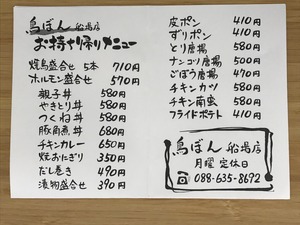 鳥ぼん 船場店
お持ち帰りメニュー
焼鳥盛合せ 5本 710円
ホルモン盛合せ 570円
親子丼 580円
やきとり丼 580円
つくね丼 580円
豚角煮丼 680円
チキンカレー 650円
焼おにぎり 350円
だし巻き 490円
漬物盛合せ 390円
皮ポン 410円
ずりポン 410円
とり唐揚 580円
ナンコツ唐揚 500円
ごぼう唐揚 470円
チキンカツ 580円
チキン南蛮 680円
フライドポテト 410円
鳥ぼん 船場店
月曜 定休日
☎ 088-635-8692